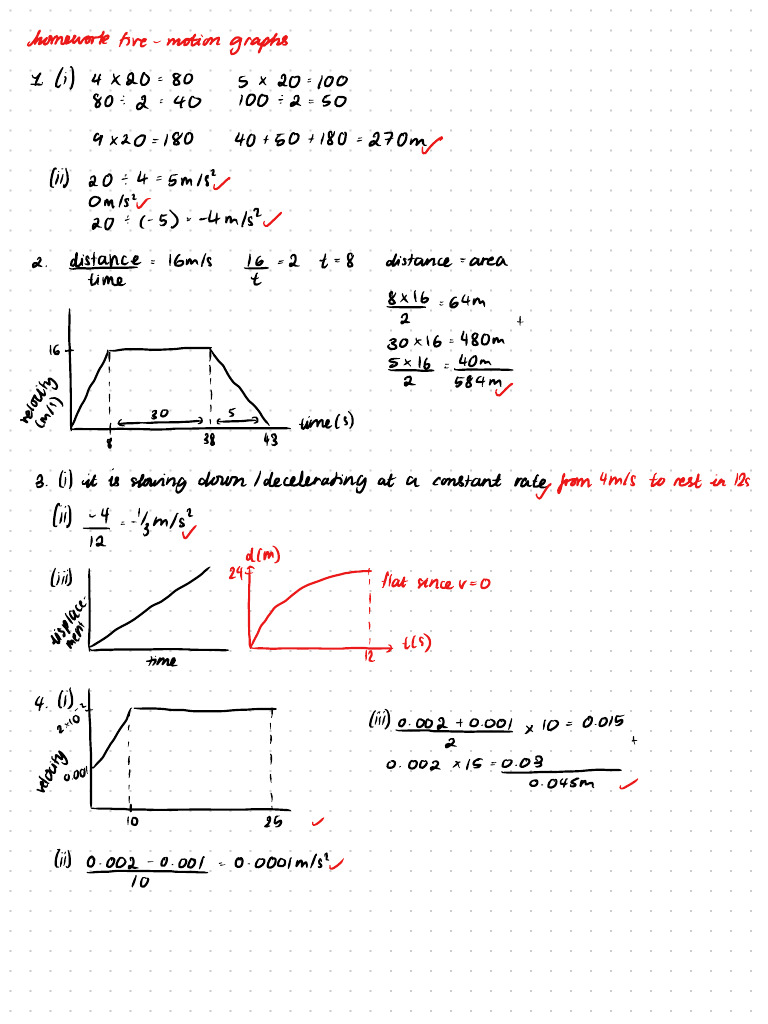 homework five - motion graphs
1. (i) 4 × 20 = 80 5 × 20 = 100
80 ÷ 2 = 40 100 ÷ 2 = 50
9 × 20 = 180 40 + 50 + 180 = 270m
(ii) 20 ÷ 4 = 5m/s²
0m/s²
20 ÷ (-5) = -4m/s²
2. distance/time = 16m/s 16/t = 2 t = 8 distance = area
8 × 16/2 = 64m
+
30 × 16 = 480m
5 × 16/2 = 40m
584m
16
velocity (m/s)
30 5
time(s)
8 38 43
3. (i) it is slowing down/decelerating at a constant rate, from 4m/s to rest in 12s
(ii) -4/12 = -1/3 m/s²
(iii) displacement
time
d(m)
24
flat since v=0
t(s)
12
4. (i) 2×10⁻²
0.001
velocity
10 25
(iii) 0.002 + 0.001/2 × 10 = 0.015
+
0.002 × 15 = 0.03
0.045m
(ii) 0.002 - 0.001/10 = 0.0001m/s²